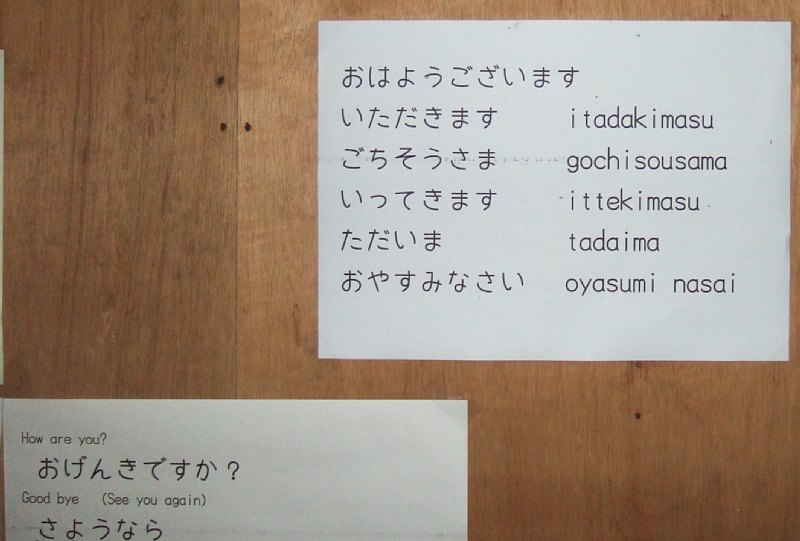 おはようございます
いただきます itadakimasu
ごちそうさま gochisousama
いってきます ittekimasu
ただいま tadaima
おやすみなさい oyasumi nasai
How are you?
おげんきですか？
Good bye (See you again)
さようなら